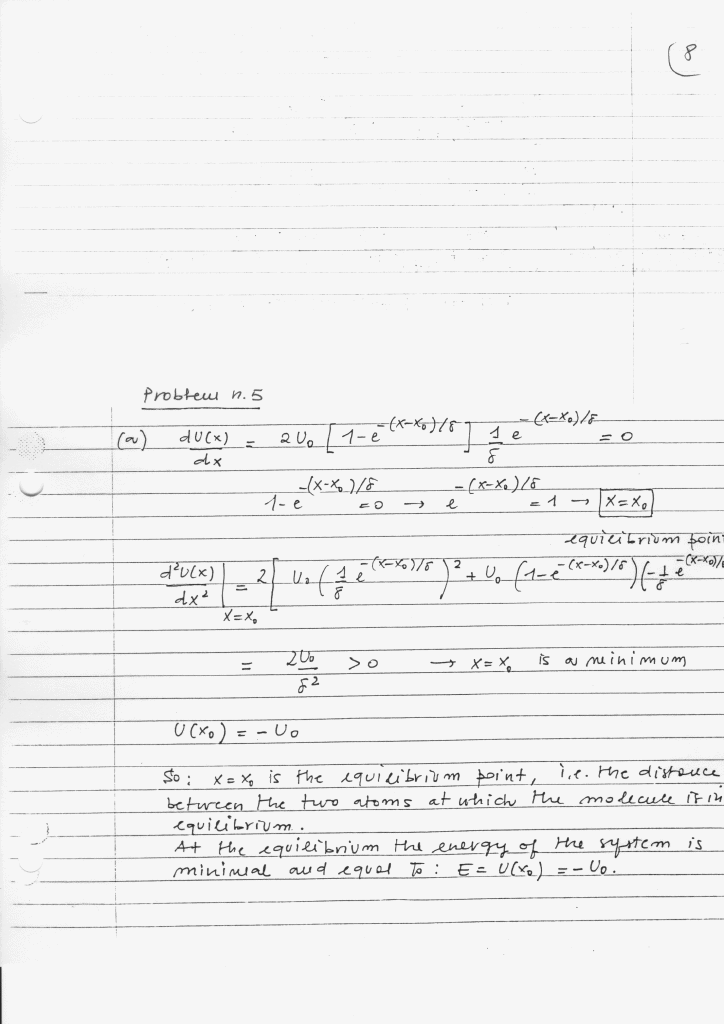 8
Problem n. 5
(a) dU(x)/dx = 2U₀ [1-e^{-(x-x₀)/δ}] 1/δ e^{-(x-x₀)/δ} = 0
1-e^{-(x-x₀)/δ} = 0 → e^{-(x-x₀)/δ} = 1 → x=x₀
equilibrium poin
d²U(x)/dx² |_{x=x₀} = 2[ U₀ (1/δ e^{-(x-x₀)/δ})² + U₀ (1-e^{-(x-x₀)/δ})(-1/δ e^{-(x-x₀)/
= 2U₀/δ² >0 → x=x₀ is a minimum
U(x₀) = -U₀
So: x=x₀ is the equilibrium point, i.e. the distance
between the two atoms at which the molecule is in
equilibrium.
At the equilibrium the energy of the system is
minimal and equal to: E= U(x₀) =-U₀.